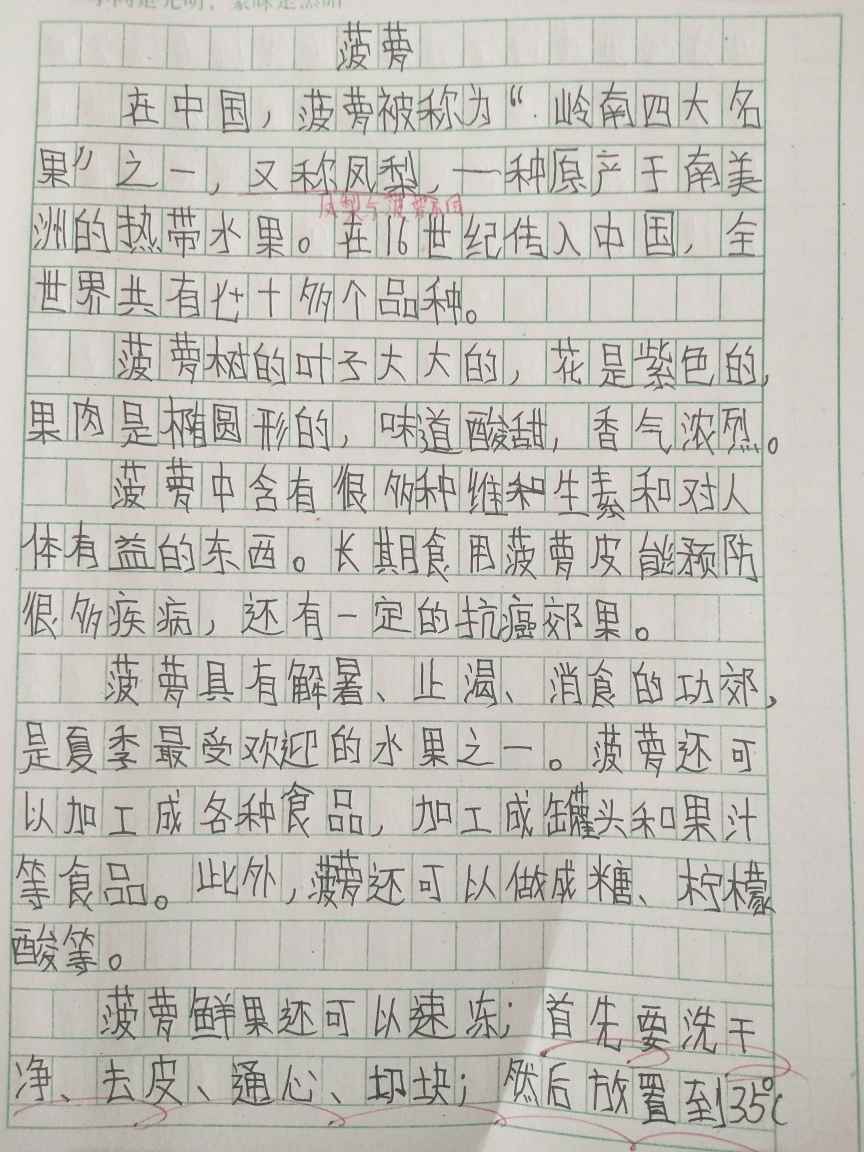 菠萝
在中国，菠萝被称为“岭南四大名
果”之一，又称凤梨，一种原产于南美
凤梨与菠萝不同
洲的热带水果。在16世纪传入中国，全
世界共有七十多个品种。
菠萝树的叶子大大的，花是紫色的，
果肉是椭圆形的，味道酸甜，香气浓烈。
菠萝中含有很多种维和生素和对人
体有益的东西。长期食用菠萝皮能预防
很多疾病，还有一定的抗癌郊果。
菠萝具有解暑、止渴、消食的功郊，
是夏季最受欢迎的水果之一。菠萝还可
以加工成各种食品，加工成罐头和果汁
等食品。此外，菠萝还可以做成糖、柠檬
酸等。
菠萝鲜果还可以速冻；首先要洗干
净、去皮、通心、切块；然后放置到35℃